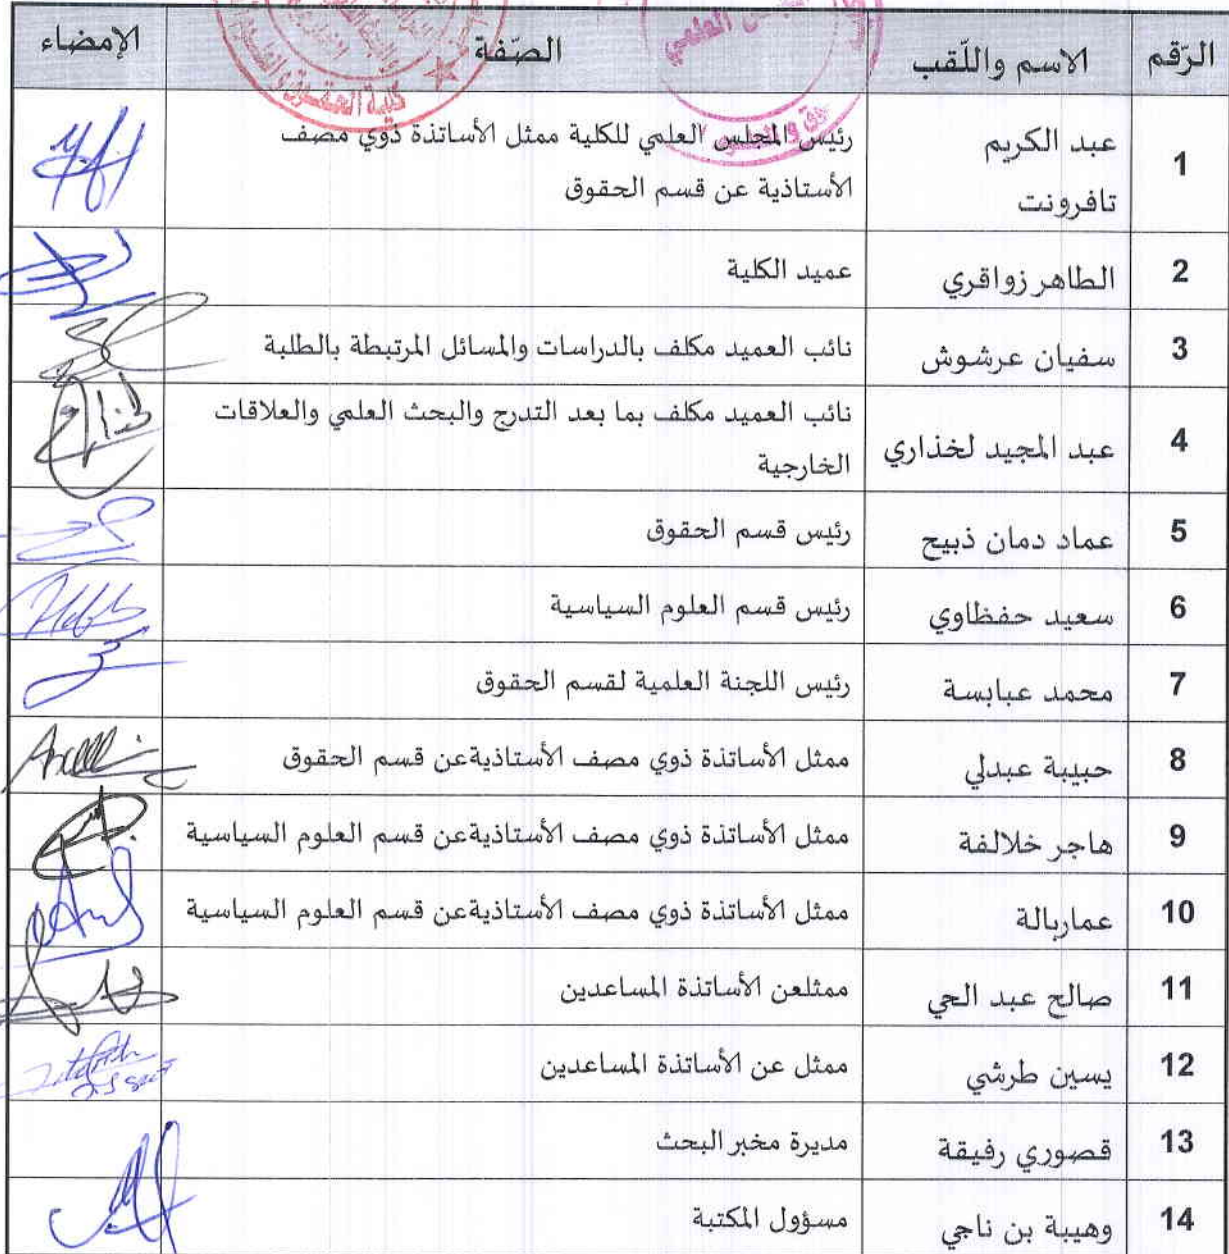 الرّقم الاسم واللّقب الصّفة الإمضاء
كلية الحقوق
المجلس العلمي
1 عبد الكريم تافرونت رئيس المجلس العلمي للكلية ممثل الأساتذة ذوي مصف
الأستاذية عن قسم الحقوق
2 الطاهر زواقري عميد الكلية
3 سفيان عرشوش نائب العميد مكلف بالدراسات والمسائل المرتبطة بالطلبة
4 عبد المجيد لخذاري نائب العميد مكلف بما بعد التدرج والبحث العلمي والعلاقات
الخارجية
5 عماد دمان ذبيح رئيس قسم الحقوق
6 سعيد حفظاوي رئيس قسم العلوم السياسية
7 محمد عبابسة رئيس اللجنة العلمية لقسم الحقوق
8 حبيبة عبدلي ممثل الأساتذة ذوي مصف الأستاذيةعن قسم الحقوق
9 هاجر خلالفة ممثل الأساتذة ذوي مصف الأستاذيةعن قسم العلوم السياسية
10 عماربالة ممثل الأساتذة ذوي مصف الأستاذيةعن قسم العلوم السياسية
11 صالح عبد الحي ممثلعن الأساتذة المساعدين
12 يسين طرشي ممثل عن الأساتذة المساعدين
13 قصوري رفيقة مديرة مخبر البحث
14 وهيبة بن ناجي مسؤول المكتبة